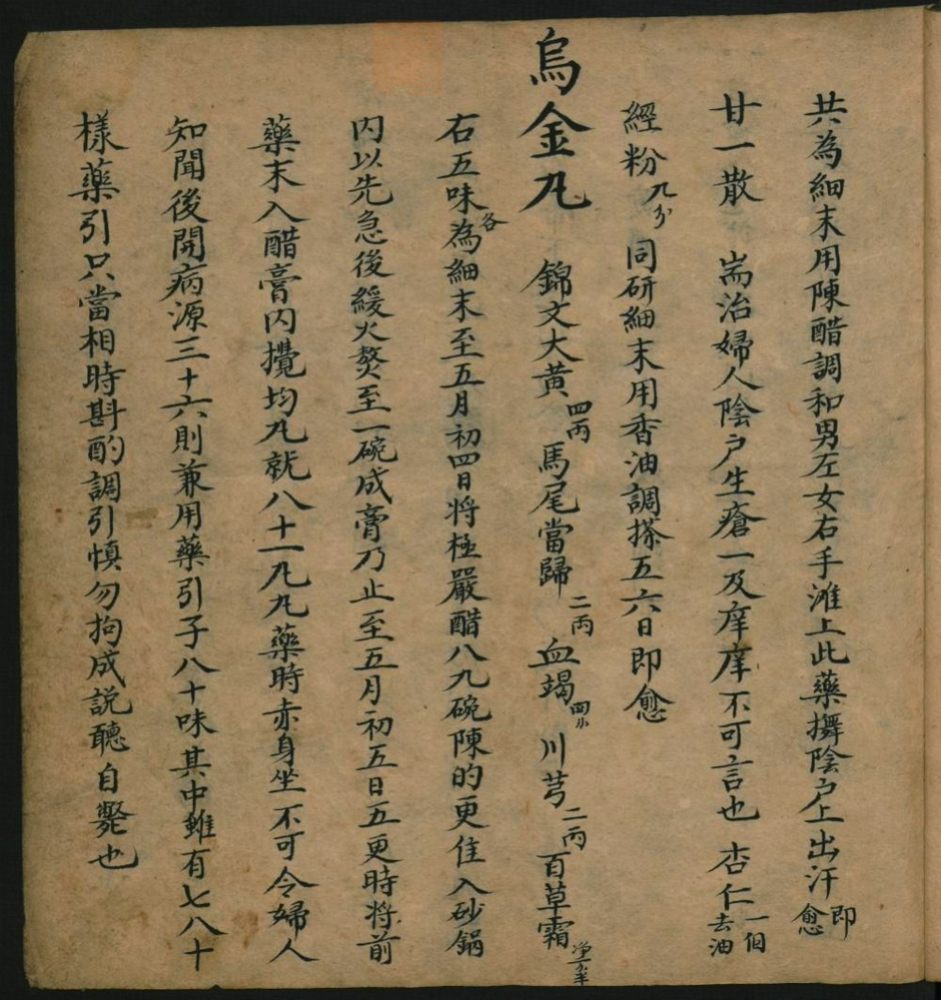 共為細末用陳醋調和男左女右手滩上此藥摀陰户上出汗即愈
甘一散　耑治婦人陰户生瘡一及痒痒不可言也　杏仁一個去油
經粉九分　同研細末用香油調搽五六日即愈
烏金九　錦文大黄四両　馬尾當歸二両　血竭　川芎二両　百草霜
右五味各為細末至五月初四日将極嚴醋八九碗陳的更佳入砂鍋
内以先急後緩火熬至一碗成膏乃止至五月初五日五更時将前
藥末入醋膏内攪均九就八十一九九藥時赤身坐不可令婦人
知聞後開病源三十六則兼用藥引子八十味其中雖有七八十
樣藥引只當相時斟酌調引慎勿拘成説聽自斃也